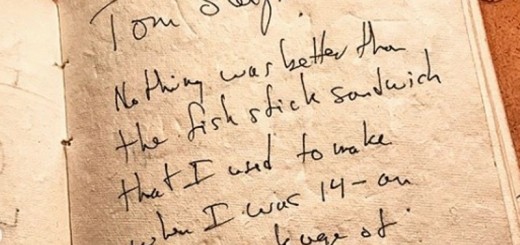 Tom
Nothing was better than
the fish stick sandwich
that I used to make
when I was 14 - an
of